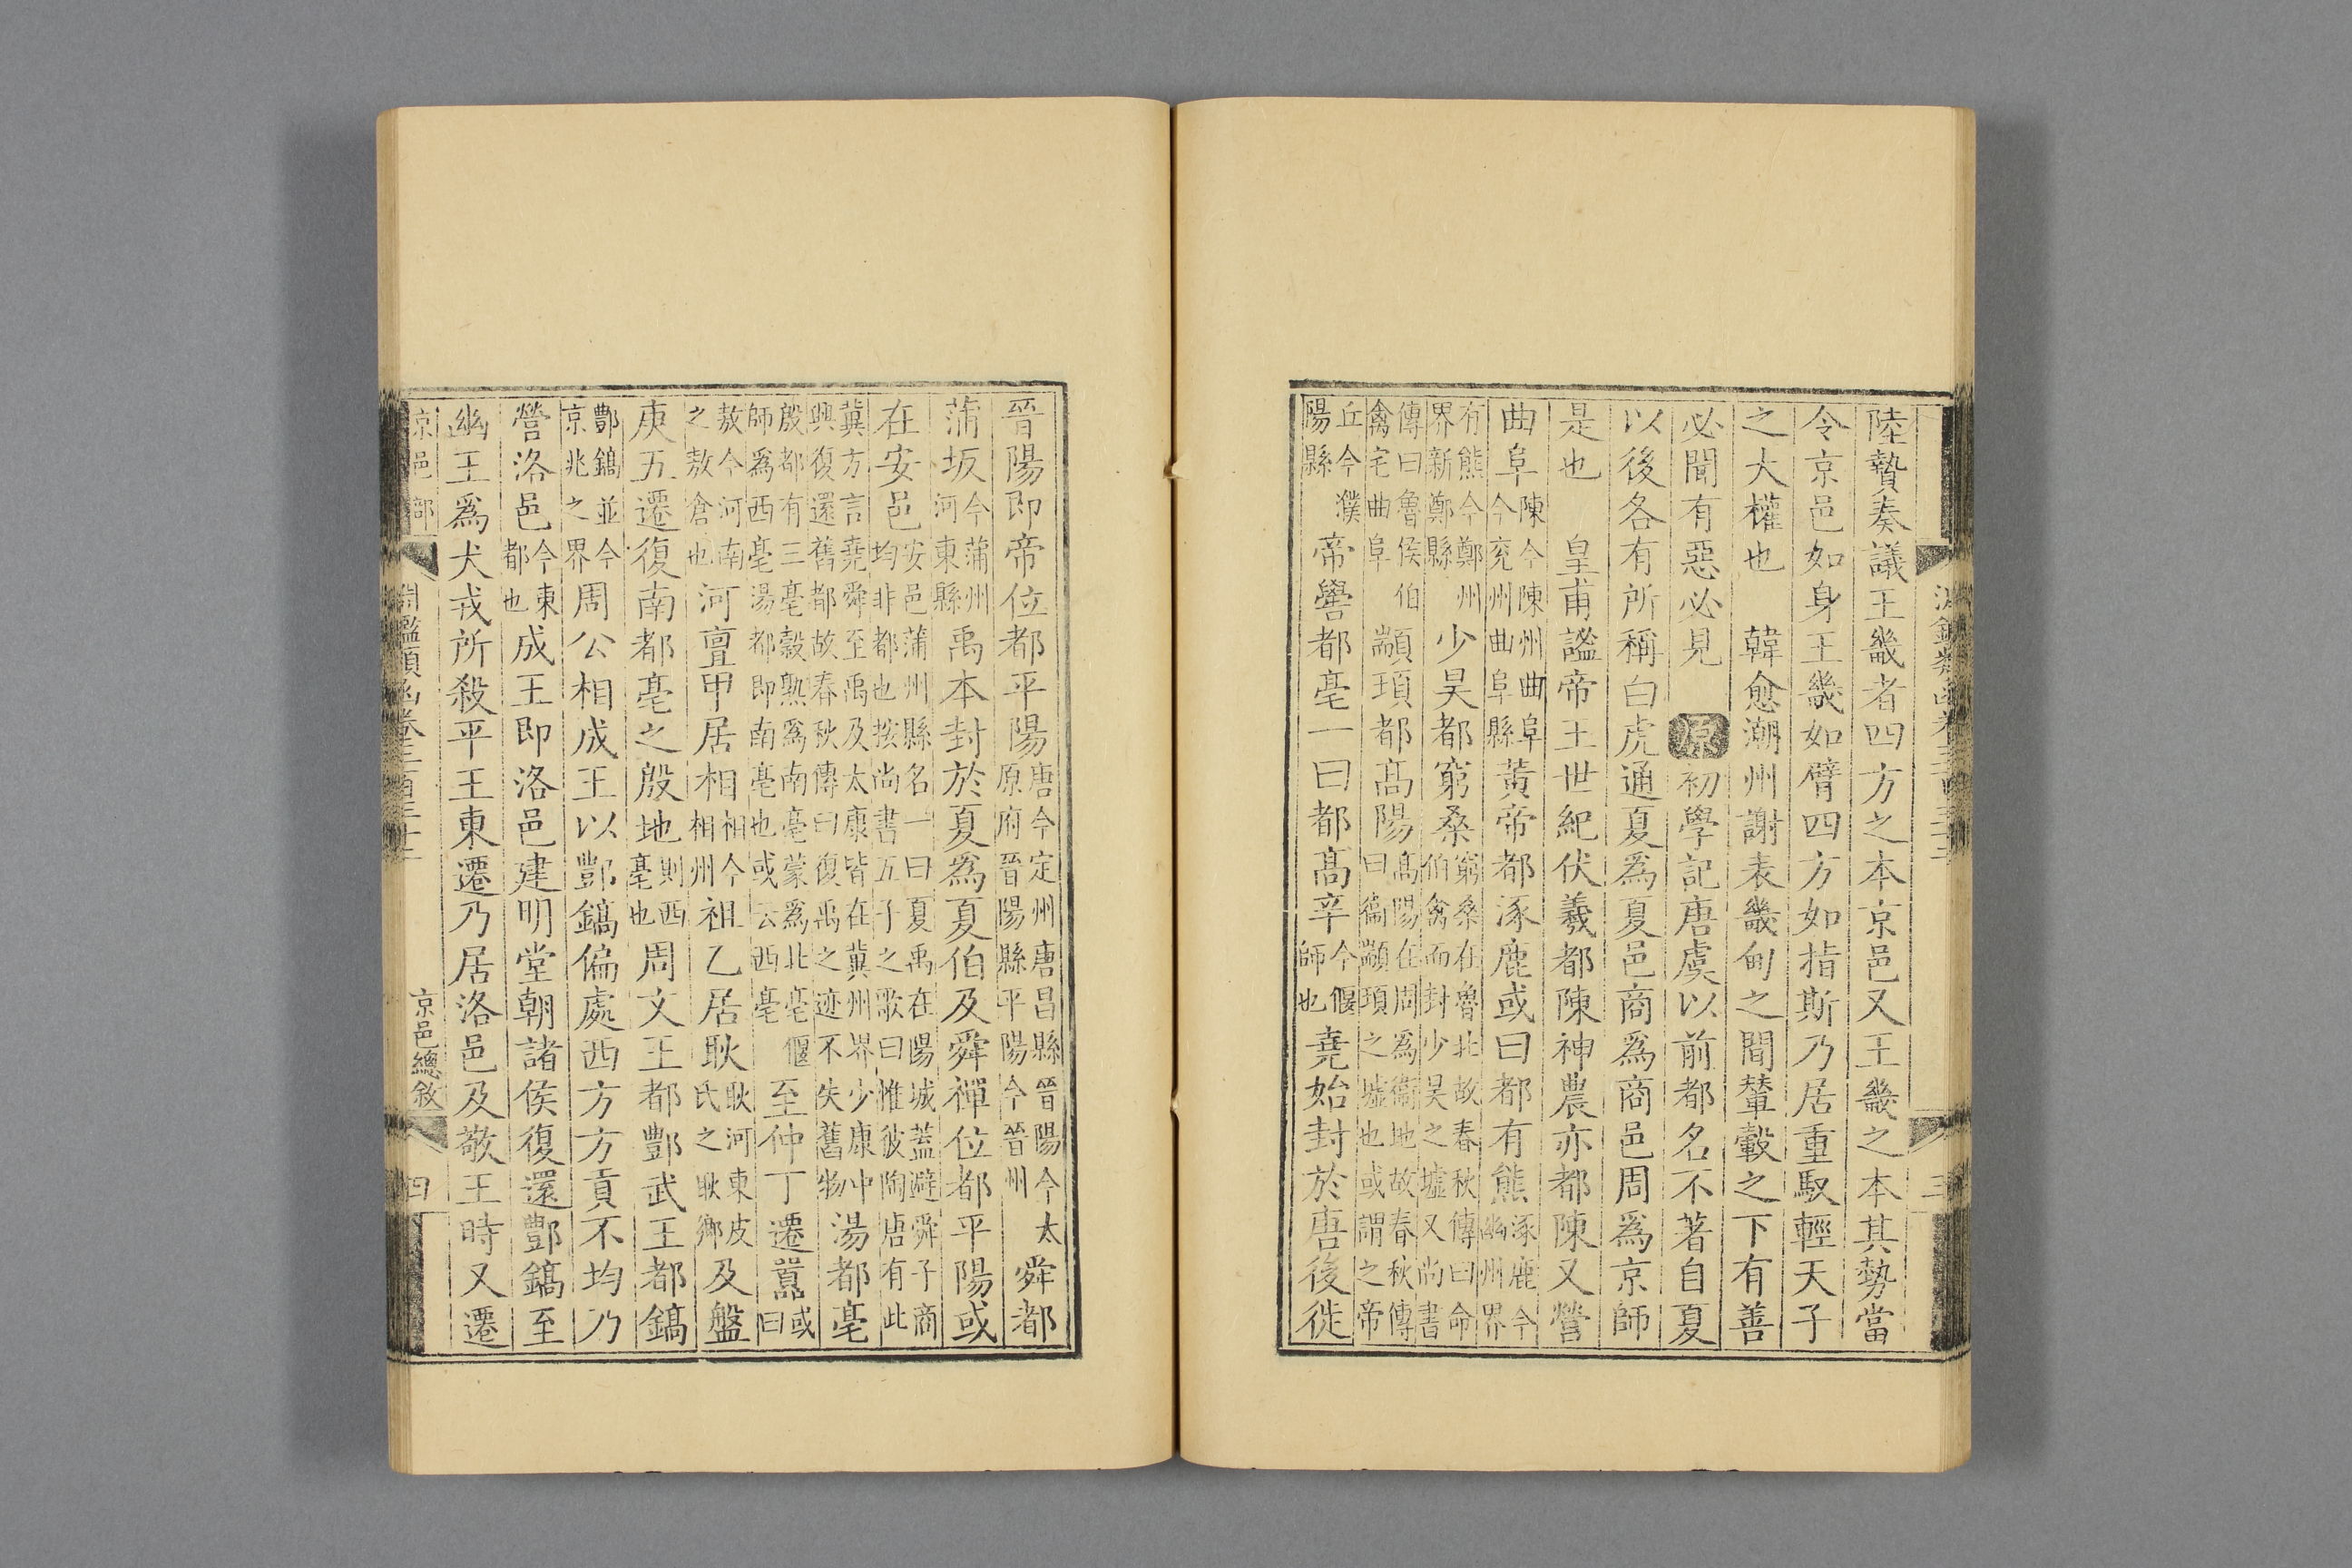 陸贄奏議王畿者四方之本京邑又王畿之本其勢當
令京邑如身王畿如臂四方如指斯乃居重馭輕天子
之大權也 韓愈潮州謝表畿甸之間輦轂之下有善
必聞有惡必見 原 初學記唐虞以前都名不著自夏
以後各有所稱白虎通夏爲夏邑商爲商邑周爲京師
是也 皇甫謐帝王世紀伏羲都陳神農亦都陳又營
曲阜陳今陳州曲阜今兖州曲阜縣黃帝都涿鹿或曰都有熊涿鹿今幽州界
有熊今鄭州界新鄭縣少昊都窮桑窮桑在魯北故春秋傳曰命伯禽而封少昊之墟又尚書
傳曰魯侯伯禽宅曲阜顓頊都高陽高陽在周爲衞地故春秋傳曰衞顓頊之墟也或謂之帝
丘今濮陽縣帝嚳都亳一曰都高辛今偃師也堯始封於唐後徙
晉陽即帝位都平陽唐今定州唐昌縣晉陽今太原府晉陽縣平陽今晉州舜都
蒲坂今蒲州河東縣禹本封於夏爲夏伯及舜禪位都平陽或
在安邑安邑蒲州縣名一曰夏禹在陽城蓋避舜子商均非都也按尚書五子之歌曰惟彼陶唐有此
冀方言堯舜至禹及太康皆在冀州界少康中興復還舊都故春秋傳曰復禹之迹不失舊物湯都亳
殷都有三亳穀熟爲南亳蒙爲北亳偃師爲西亳湯都即南亳也或云西亳至仲丁遷囂或曰
敖今河南之敖倉也河亶甲居相相今相州祖乙居耿耿河東皮氏之耿鄉及盤
庚五遷復南都亳之殷地則西亳也周文王都酆武王都鎬
酆鎬並今京兆之界周公相成王以酆鎬偏處西方方貢不均乃
營洛邑今東都也成王即洛邑建明堂朝諸侯復還酆鎬至
幽王爲犬戎所殺平王東遷乃居洛邑及敬王時又遷
京邑部 淵鑑類函卷三百三十三 京邑總敘 四